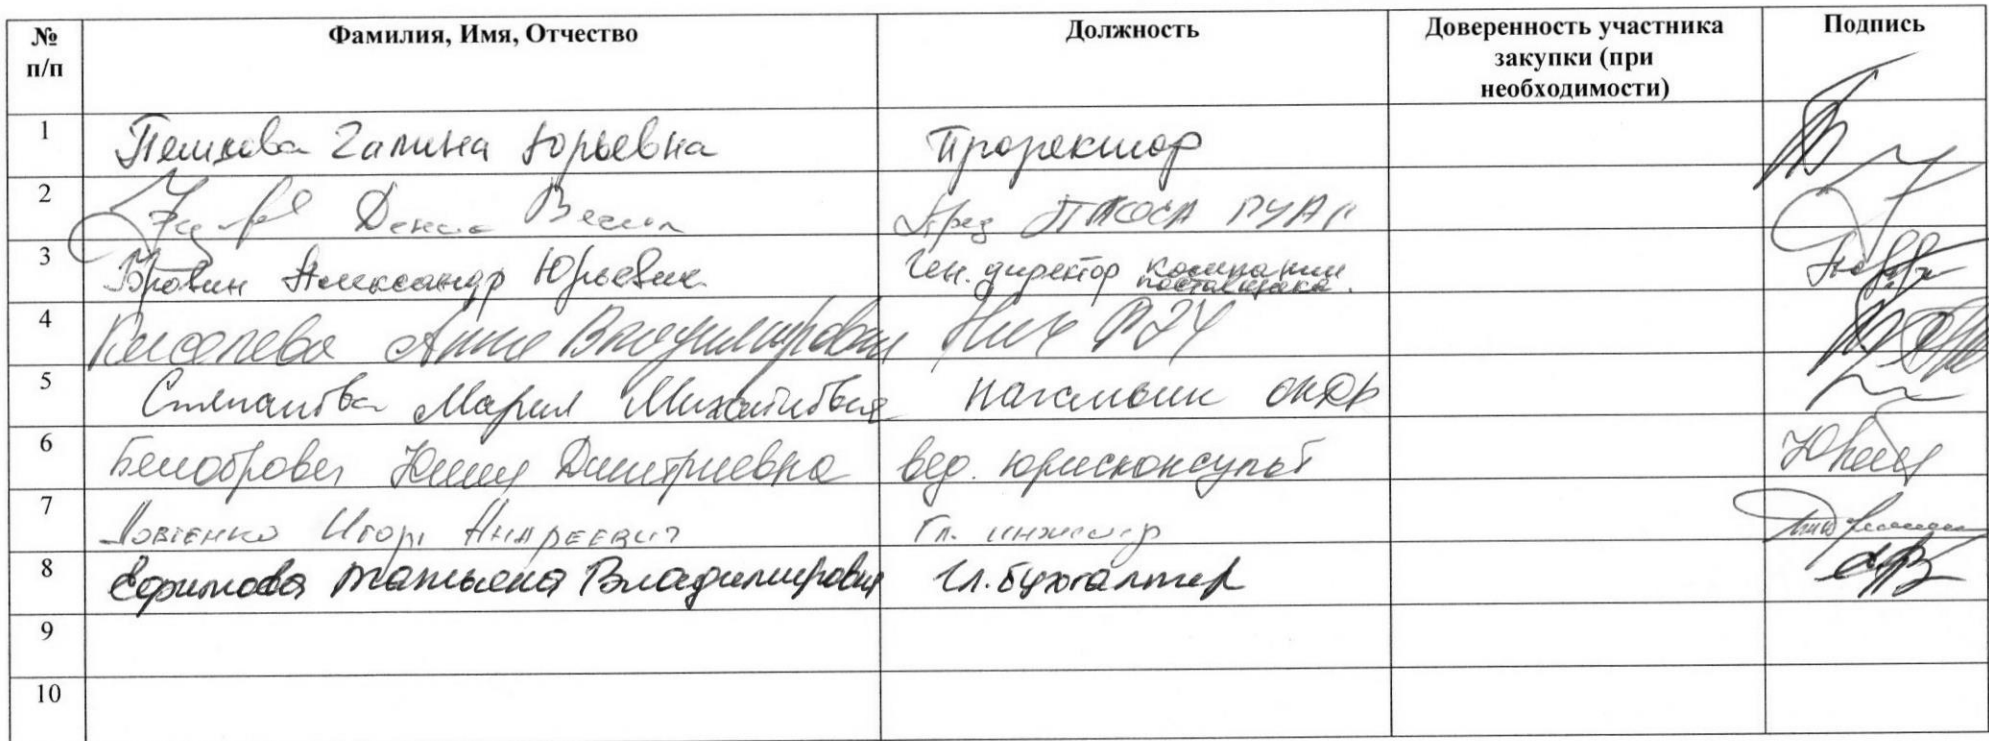 № п/п Фамилия, Имя, Отчество Должность Доверенность участника закупки (при необходимости) Подпись
1 Пешкова Галина Юрьевна Проректор
2 Денис Пред ГУАП
3 Бровин Александр Юрьевич Ген. директор компании поставщика.
4 Киселева Анна Владимировна
5 Степанова Мария Михайловна начальник
6 Белобровец Юлия Дмитриевна вед. юрисконсульт
7 Игорь Андреевич Гл. инженер
8 Ефимова Татьяна Владимировна Гл. бухгалтер
9
10